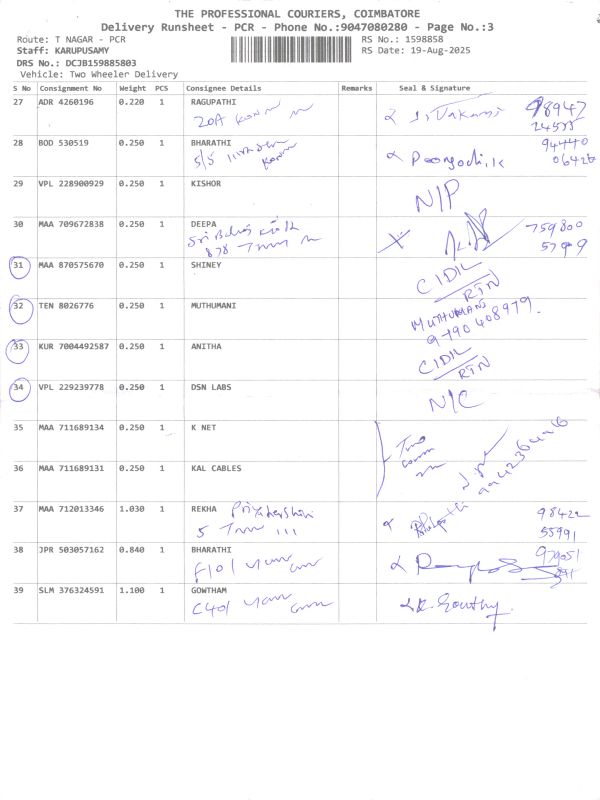 THE PROFESSIONAL COURIERS, COIMBATORE
Delivery Runsheet - PCR - Phone No.:9047080280 - Page No.:3
Route: T NAGAR - PCR RS No.: 1598858
Staff: KARUPUSAMY RS Date: 19-Aug-2025
DRS No.: DCJB159885803
Vehicle: Two Wheeler Delivery
S No Consignment No Weight PCS Consignee Details Remarks Seal & Signature
27 ADR 4260196 0.220 1 RAGUPATHI
20A
28 BOD 530519 0.250 1 BHARATHI 94440
5/5 Poongodi.k 06426
29 VPL 228900929 0.250 1 KISHOR N/P
30 MAA 709672838 0.250 1 DEEPA 759800
Sri
878
31 MAA 870575670 0.250 1 SHINEY C I D I L
RTN
32 TEN 8026776 0.250 1 MUTHUMANI MUTHUMANI
9790408979.
33 KUR 7004492587 0.250 1 ANITHA C I D I L
RTN
34 VPL 229239778 0.250 1 DSN LABS N/C
35 MAA 711689134 0.250 1 K NET
36 MAA 711689131 0.250 1 KAL CABLES
37 MAA 712013346 1.030 1 REKHA Priyadarshini 98422
5 55991
38 JPR 503057162 0.840 1 BHARATHI
F101
39 SLM 376324591 1.100 1 GOWTHAM
C401